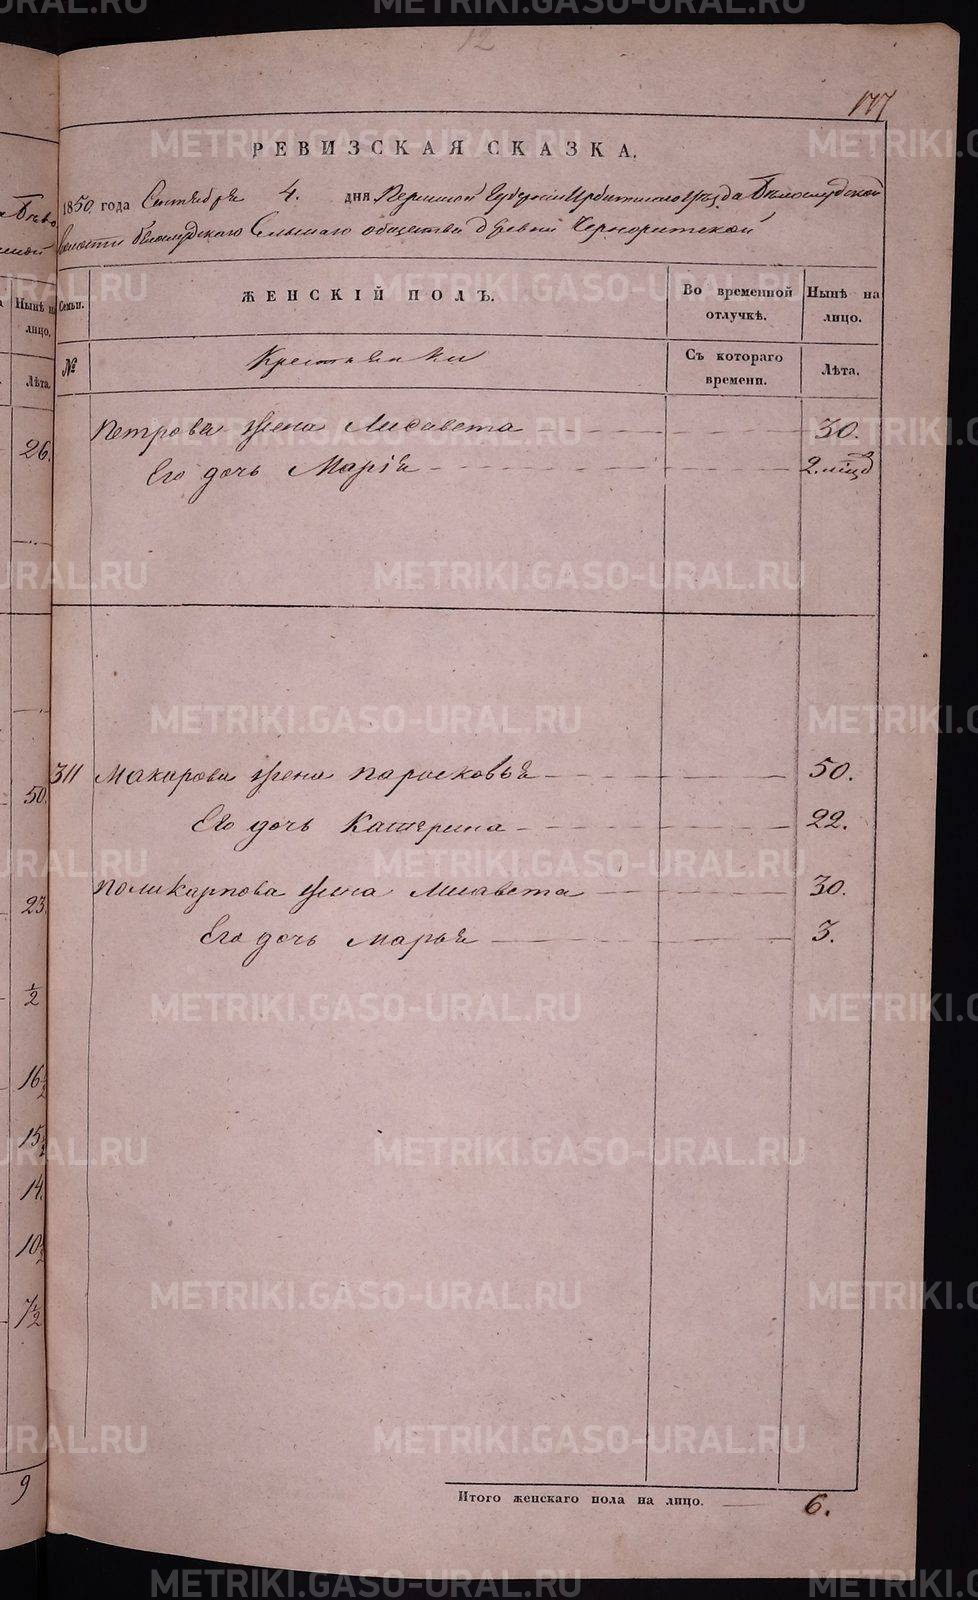 12
177
РЕВИЗСКАЯ СКАЗКА.
1850 года Сентября 4. дня Пермской Губернии Ирбитскаго Уѣзда Бѣлослудской
Волости Бѣлослудскаго Сельскаго общества деревни
Семьи. ЖЕНСКІЙ ПОЛЪ. Во временной отлучкѣ. Нынѣ на лицо.
№ Крестьянки Съ котораго времени. Лѣта.
Петрова жена Лисавета 30.
Его дочь Марія 2. мѣц
311 Макарова жена Парасковья 50.
Его дочь Катерина 22.
Поликарпова жена Лисавета 30.
Его дочь Марья 3.
Итого женскаго пола на лицо. 6.
Нынѣ на
лицо.
Лѣта.
26.
50.
23.
1/2
16 1/2
15 1/2
14.
10 1/2
7 1/2
9
METRIKI.GASO-URAL.RU